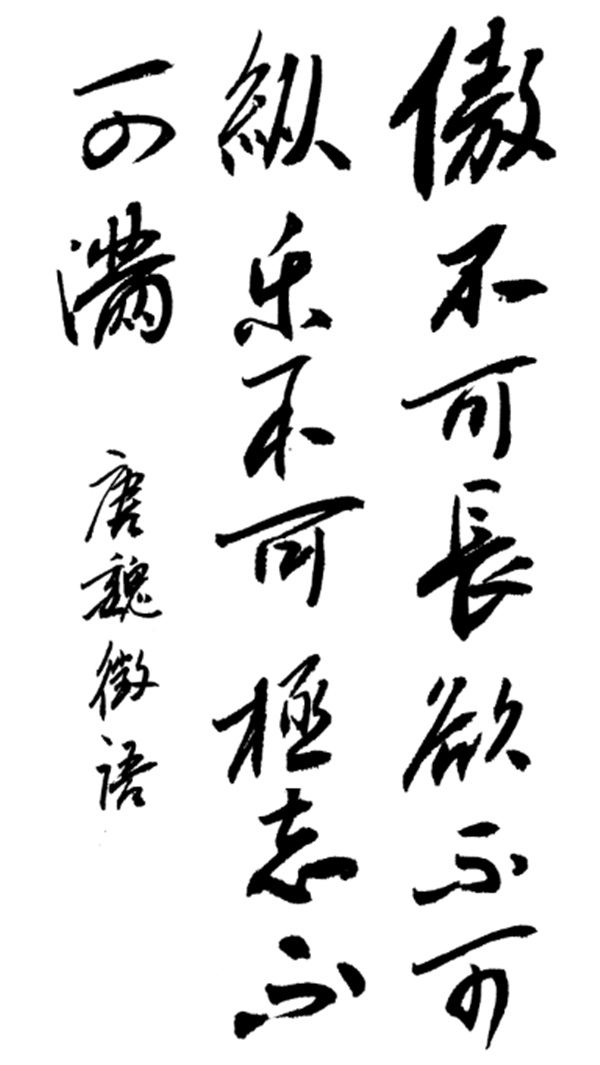 傲不可長欲不可
縱乐不可極志不
可滿
唐魏徵语